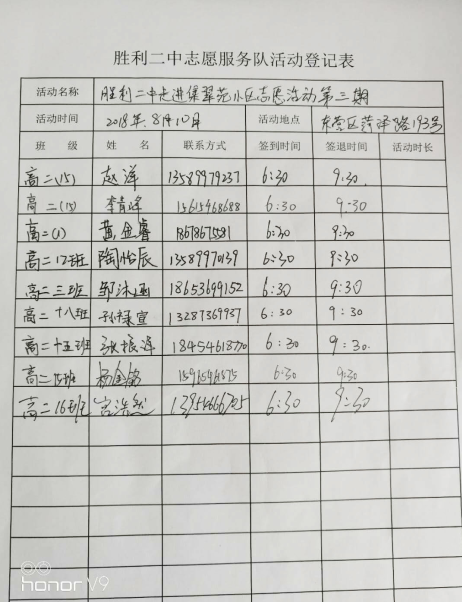 胜利二中志愿服务队活动登记表
活动名称 胜利二中走进保翠苑小区志愿活动第三期
活动时间 2018年.8月10日 活动地点 东营区菏泽路193号
班 级 姓 名 联系方式 签到时间 签退时间 活动时长
高二(15) 赵洋 13589979237 6:30 9:30.
高二(15) 李青峰 15615468688 6:30 9:30
高二(1) 黄金睿 6:30 9:30
高二12班 陶怡辰 13589970139 6:30 9:30
高二三班 邹沐涵 18653699152 6:30 9:30
高二十八班 孙禄宣 13287369937 6:30 9:30
高二十五班 张振泽 18454618770 6:30 9:30.
高二15班 6:30 9:30
高二16班 宫浩然 13954666705 6:30 9:30
honor V9